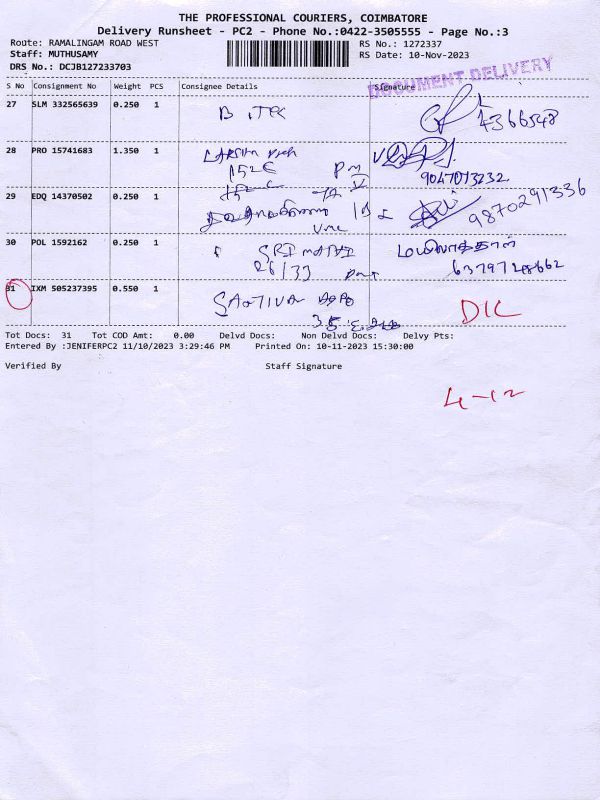 THE PROFESSIONAL COURIERS, COIMBATORE
Delivery Runsheet - PC2 - Phone No.:0422-3505555 - Page No.:3
Route: RAMALINGAM ROAD WEST
RS No.: 1272337
Staff: MUTHUSAMY
RS Date: 10-Nov-2023
DRS No.: DCJB127233703
DOCUMENT DELIVERY
S No Consignment No Weight PCS Consignee Details Signature
27 SLM 332565639 0.250 1
4366548
28 PRO 15741683 1.350 1
152E
9047013232
29 EDQ 14370502 0.250 1
9870291336
30 POL 1592162 0.250 1
26/33
6379728662
31 IXM 505237395 0.550 1
DIL
Tot Docs: 31 Tot COD Amt: 0.00 Delvd Docs: Non Delvd Docs: Delvy Pts:
Entered By :JENIFERPC2 11/10/2023 3:29:46 PM Printed On: 10-11-2023 15:30:00
Verified By Staff Signature
4-12